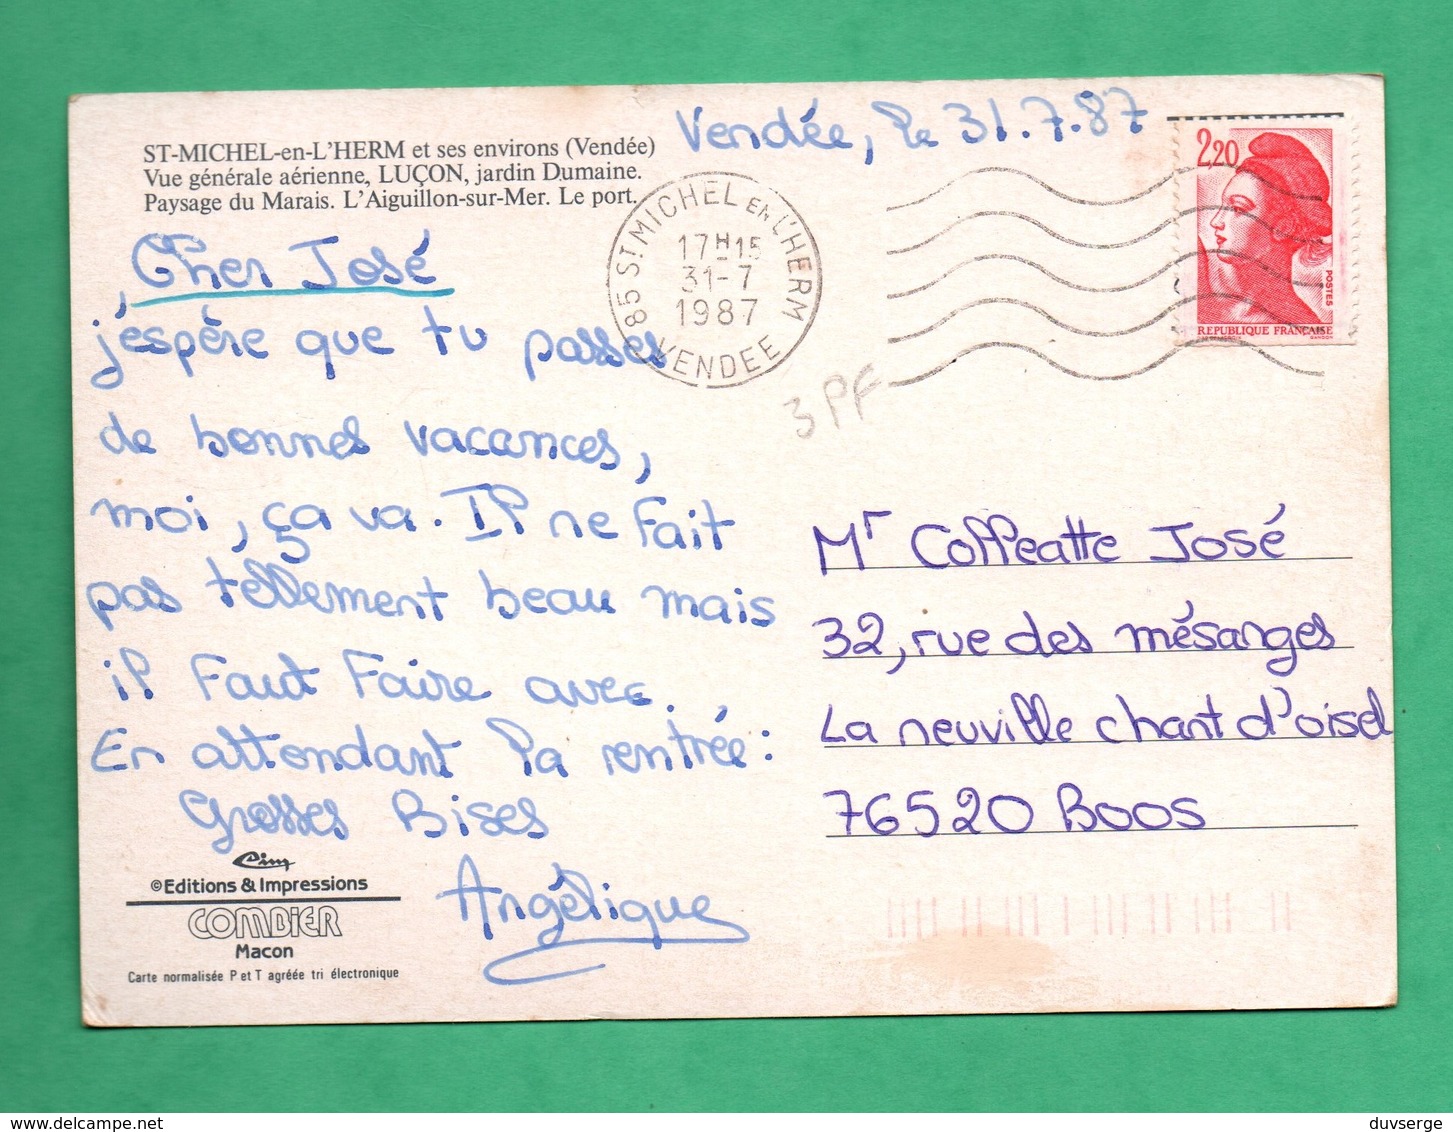 Vendée, le 31.7.87
ST-MICHEL-en-L'HERM et ses environs (Vendée)
Vue générale aérienne, LUÇON, jardin Dumaine.
Paysage du Marais. L'Aiguillon-sur-Mer. Le port.
85 ST MICHEL EN L'HERM
17H15
31-7
1987
VENDEE
2,20
POSTES
REPUBLIQUE FRANÇAISE
3 PF
Cher José,
j'espère que tu passes
de bonnes vacances,
moi, ça va. Il ne fait
pas tellement beau mais
il faut faire avec.
En attendant la rentrée :
Grosses Bises
Angélique
Mr Coffeatte José
32, rue des mésanges
La neuville chant d'oisel
76520 Boos
Cim
©Editions & Impressions
COMBIER
Macon
Carte normalisée P et T agréée tri électronique
duvserge